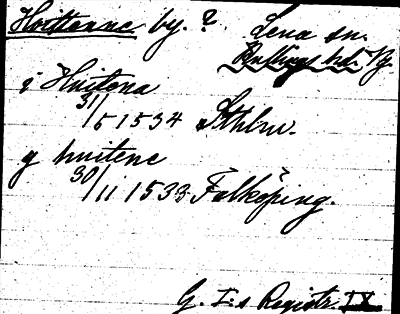 Hvittanne by. ? Lena sn.
Bällings hd. Vg.
i Huitena
31/5 1534 Sthlm.
y huitene
30/11 1533 Falköping.
G. I:s Registr. IX